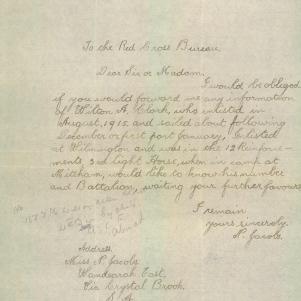 To the Red Cross Bureau
Dear Sir or Madam.
I would be obliged
if you would forward me any information
of Wilton A. Clark, who enlisted in
August, 1915 and sailed about following
December or first part January, Enlisted
at Wilmington and was in the 12 Reinforce-
ments, 3rd Light Horse, when in camp at
Mitcham, would like to know his number
and Battalion, waiting your further favours
I remain
yours sincerely.
P. Jacobs.
Address.
Miss P. Jacobs
Wandearah East,
Via Crystal Brook.
S. A.